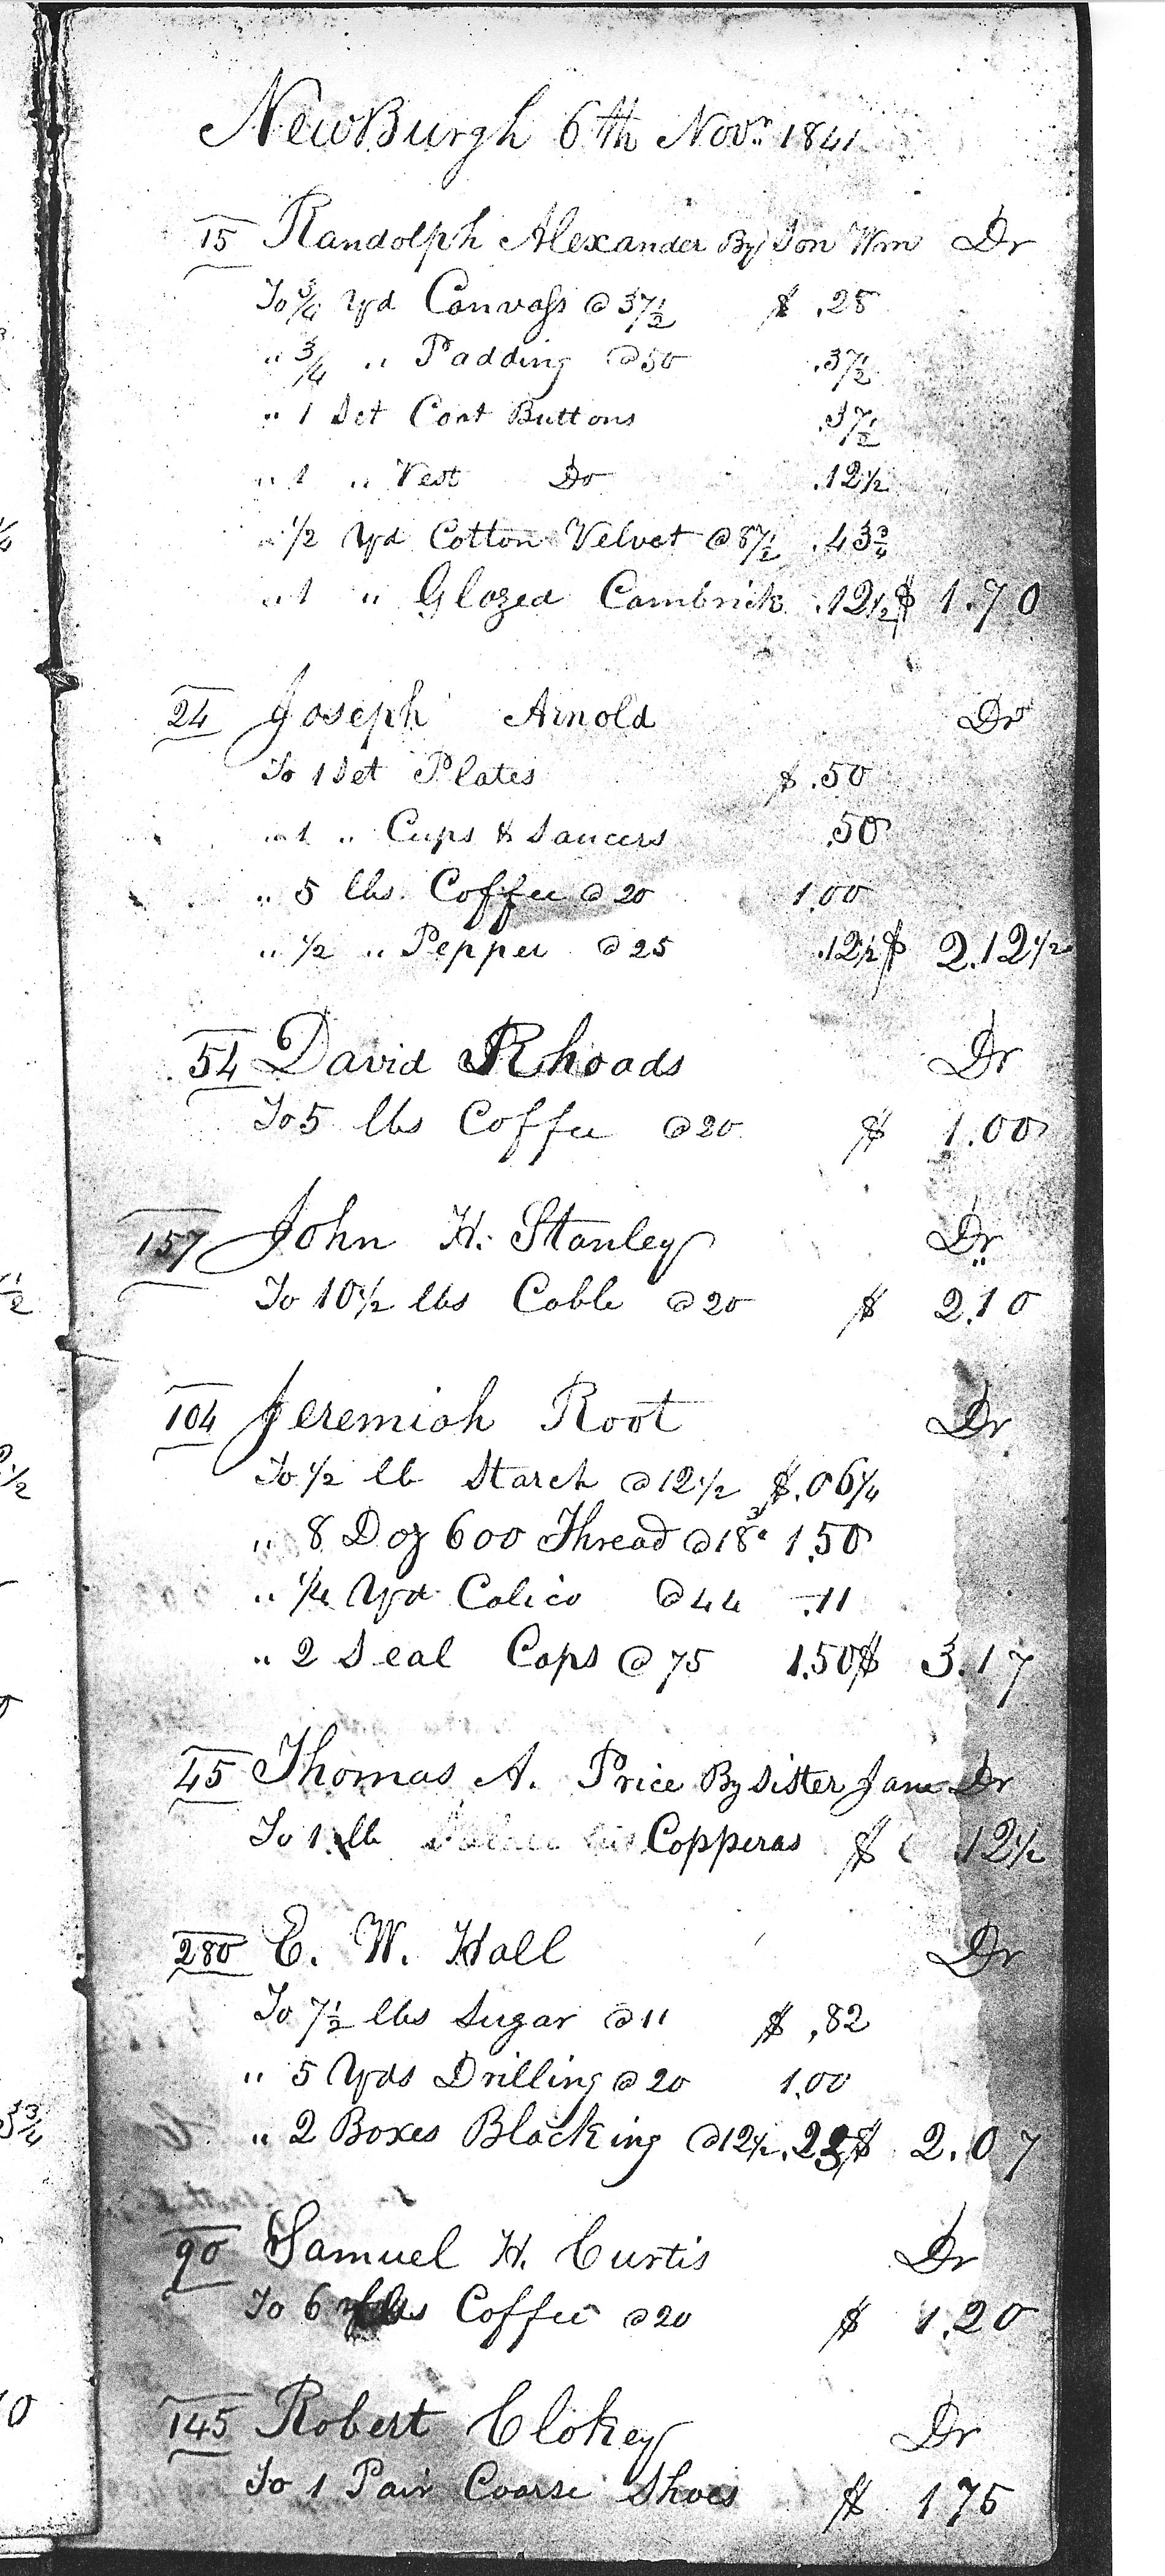 NewBurgh 6th Novr 1841
15 Randolph Alexander By Son Wm Dr
To 3/4 Yd Canvass @ 37 1/2 $ .28
" 3/4 " Padding @ 50 .37 1/2
" 1 Set Coat Buttons .37 1/2
" 1 " Vest Do .12 1/2
" 1/2 Yd Cotton Velvet @ 87 1/2 .43 3/4
" 1 " Glozed Cambrick .12 1/2 $ 1.70
24 Joseph Arnold Dr
To 1 Set Plates $ .50
" 1 " Cups & Saucers .50
" 5 lbs. Coffee @ 20 1.00
" 1/2 " Pepper @ 25 .12 1/2 $ 2.12 1/2
54 David Rhoads Dr
To 5 lbs Coffee @ 20 $ 1.00
157 John H. Stanley Dr
To 10 1/2 lbs Cable @ 20 $ 2.10
104 Jeremiah Root Dr
To 1/2 lb Starch @ 12 1/2 $ .06 1/4
" 8 Doz 600 Thread @ 18 3/4 1.50
" 1/4 Yd Calico @ 44 .11
" 2 Seal Caps @ 75 1.50 $ 3.17
45 Thomas A. Price By Sister Jane Dr
To 1 lb Copperas $ 12 1/2
280 E. W. Hall Dr
To 7 1/2 lbs Sugar @ 11 $ .82
" 5 Yds Drilling @ 20 1.00
" 2 Boxes Blacking @ 12 1/2 .25 $ 2.07
90 Samuel H. Curtis Dr
To 6 lbs Coffee @ 20 $ 1.20
145 Robert Clokey Dr
To 1 Pair Coarse Shoes $ 1 75